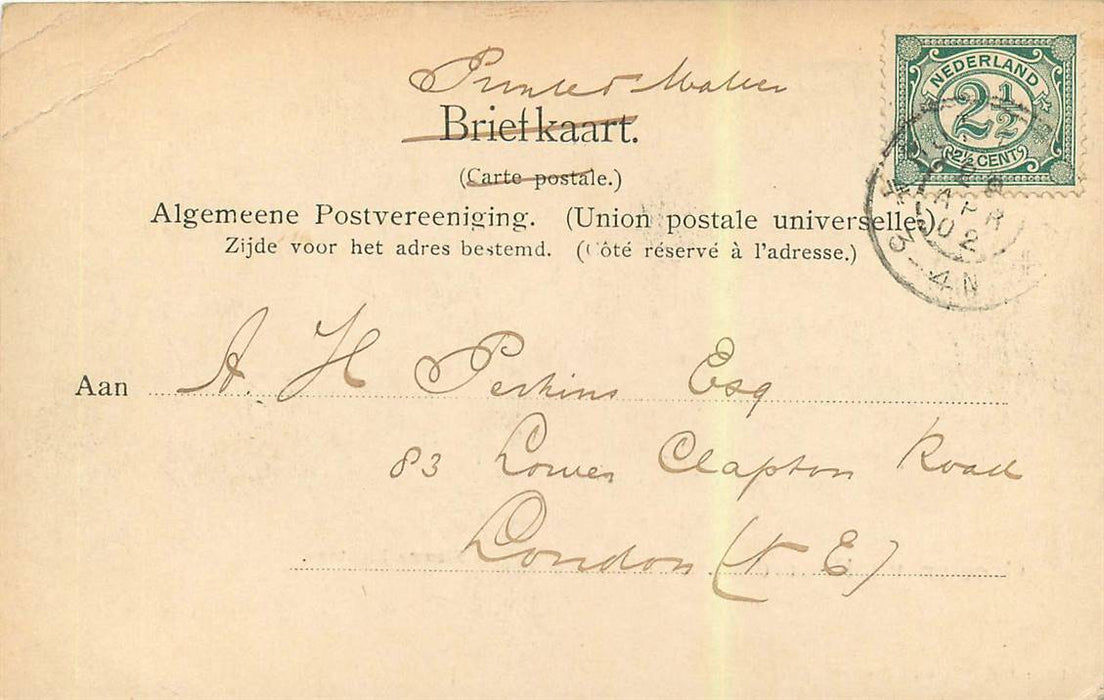 Printed Matter
Briefkaart.
(Carte postale.)
Algemeene Postvereeniging. (Union postale universelle.)
Zijde voor het adres bestemd. (Côté réservé à l'adresse.)
NEDERLAND
2½
2½ CENT
APR
02
4 N
Aan A. H Perkins Esq
83 Lower Clapton Road
London (N E)